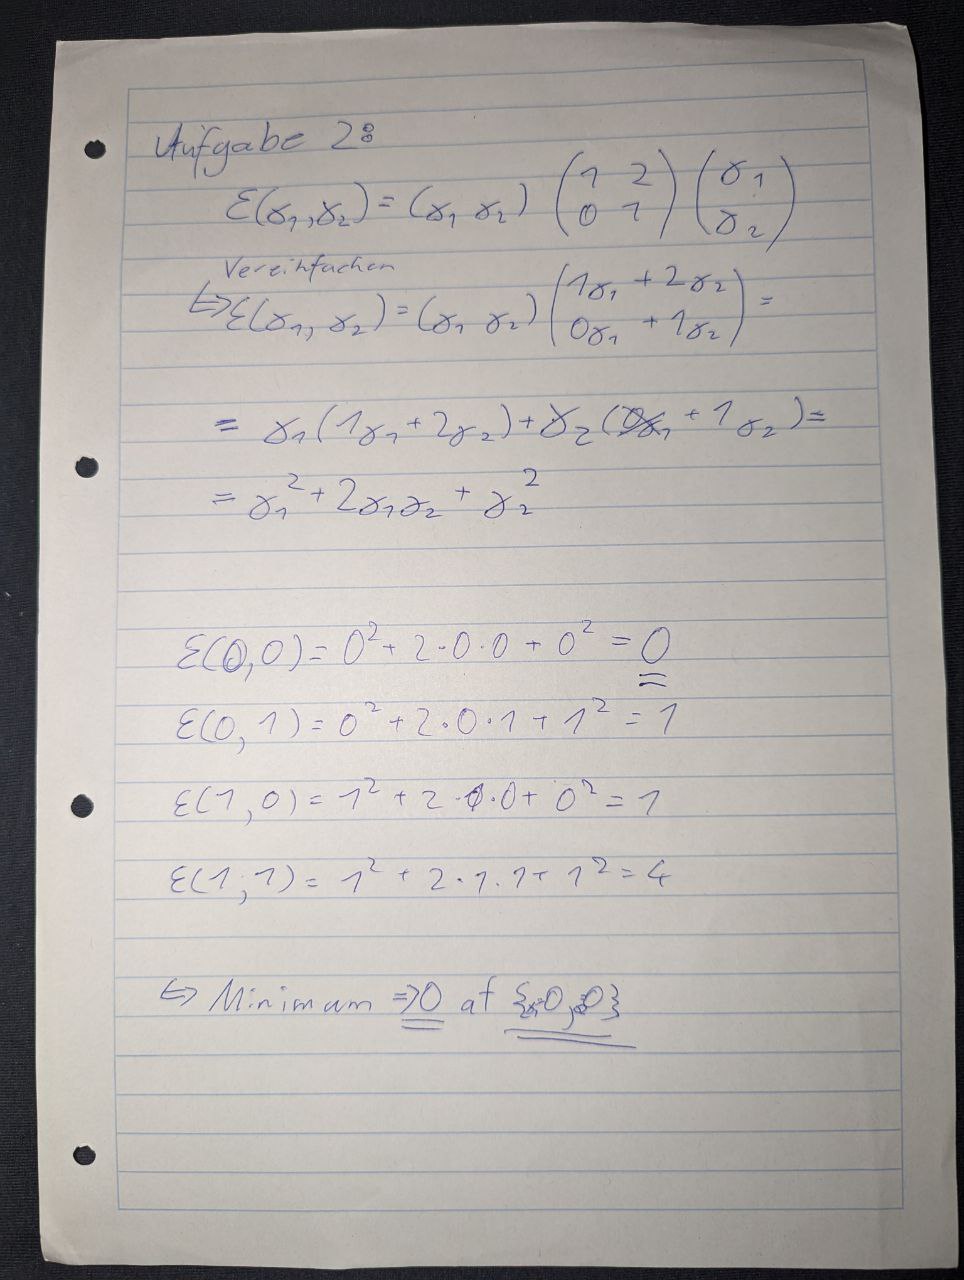 Aufgabe 2:
ℰ(γ₁,γ₂) = (γ₁ γ₂) (1 2; 0 1) (γ₁; γ₂)
Vereinfachen
↪ ℰ(γ₁, γ₂) = (γ₁ γ₂) (1γ₁ + 2γ₂; 0γ₁ + 1γ₂) =
= γ₁(1γ₁ + 2γ₂) + γ₂(0γ₁ + 1γ₂) =
= γ₁² + 2γ₁γ₂ + γ₂²
ℰ(0,0) = 0² + 2·0·0 + 0² = 0
ℰ(0,1) = 0² + 2·0·1 + 1² = 1
ℰ(1,0) = 1² + 2·0·0 + 0² = 1
ℰ(1,1) = 1² + 2·1·1 + 1² = 4
↪ Minimum ⇒ 0 at {0, 0}